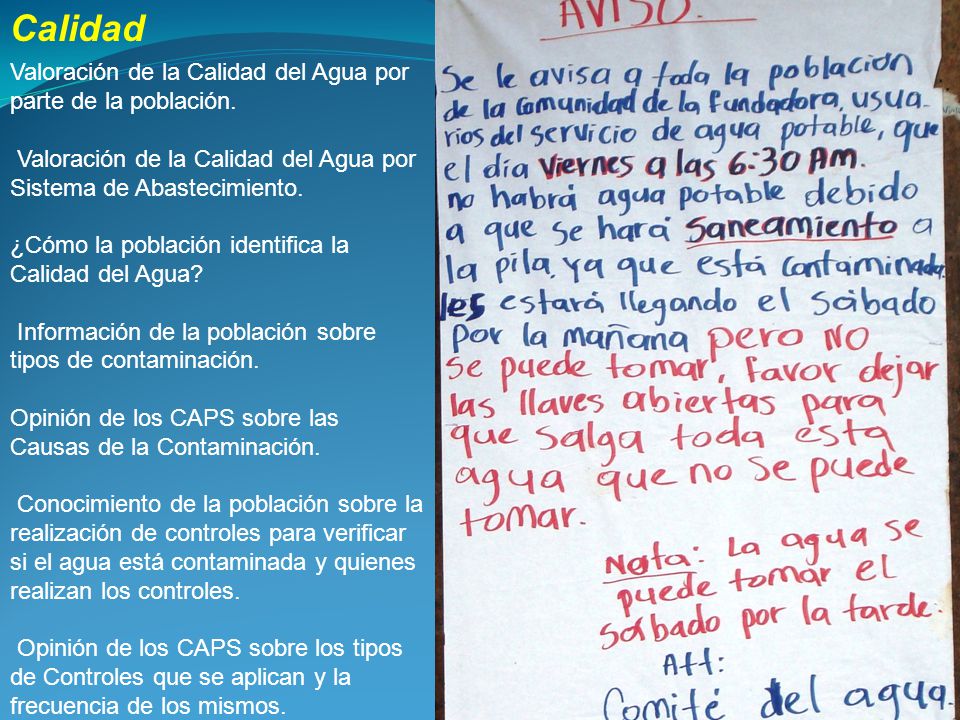 Calidad
Valoración de la Calidad del Agua por
parte de la población.
Valoración de la Calidad del Agua por
Sistema de Abastecimiento.
¿Cómo la población identifica la
Calidad del Agua?
Información de la población sobre
tipos de contaminación.
Opinión de los CAPS sobre las
Causas de la Contaminación.
Conocimiento de la población sobre la
realización de controles para verificar
si el agua está contaminada y quienes
realizan los controles.
Opinión de los CAPS sobre los tipos
de Controles que se aplican y la
frecuencia de los mismos.
AVISO.
Se le avisa a toda la población
de la comunidad de la fundadora, usua-
rios del servicio de agua potable, que
el día viernes a las 6:30 Am.
no habrá agua potable debido
a que se hará saneamiento a
la pila, ya que está contaminada.
les estará llegando el sábado
por la mañana pero NO
se puede tomar, favor dejar
las llaves abiertas para
que salga toda esta
agua que no se puede
tomar.
Nota: La agua se
puede tomar el
sábado por la tarde.
Att:
Comité del agua.